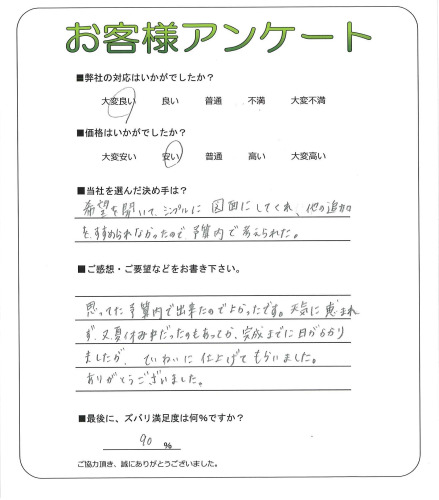 お客様アンケート
■弊社の対応はいかがでしたか?
大変良い 良い 普通 不満 大変不満
■価格はいかがでしたか?
大変安い 安い 普通 高い 大変高い
■当社を選んだ決め手は?
希望を聞いて、シンプルに 図面にしてくれ、他の追加
をすすめられなかったので 予算内で考えられた。
■ご感想・ご要望などをお書き下さい。
思ってた予算内で出来たのでよかったです。天気に恵まれ
ず、又夏休み中だったのもあってか、完成までに日がかかり
ましたが、ていねいに仕上げてもらいました。
ありがとうございました。
■最後に、ズバリ満足度は何%ですか?
90 %
ご協力頂き、誠にありがとうございました。